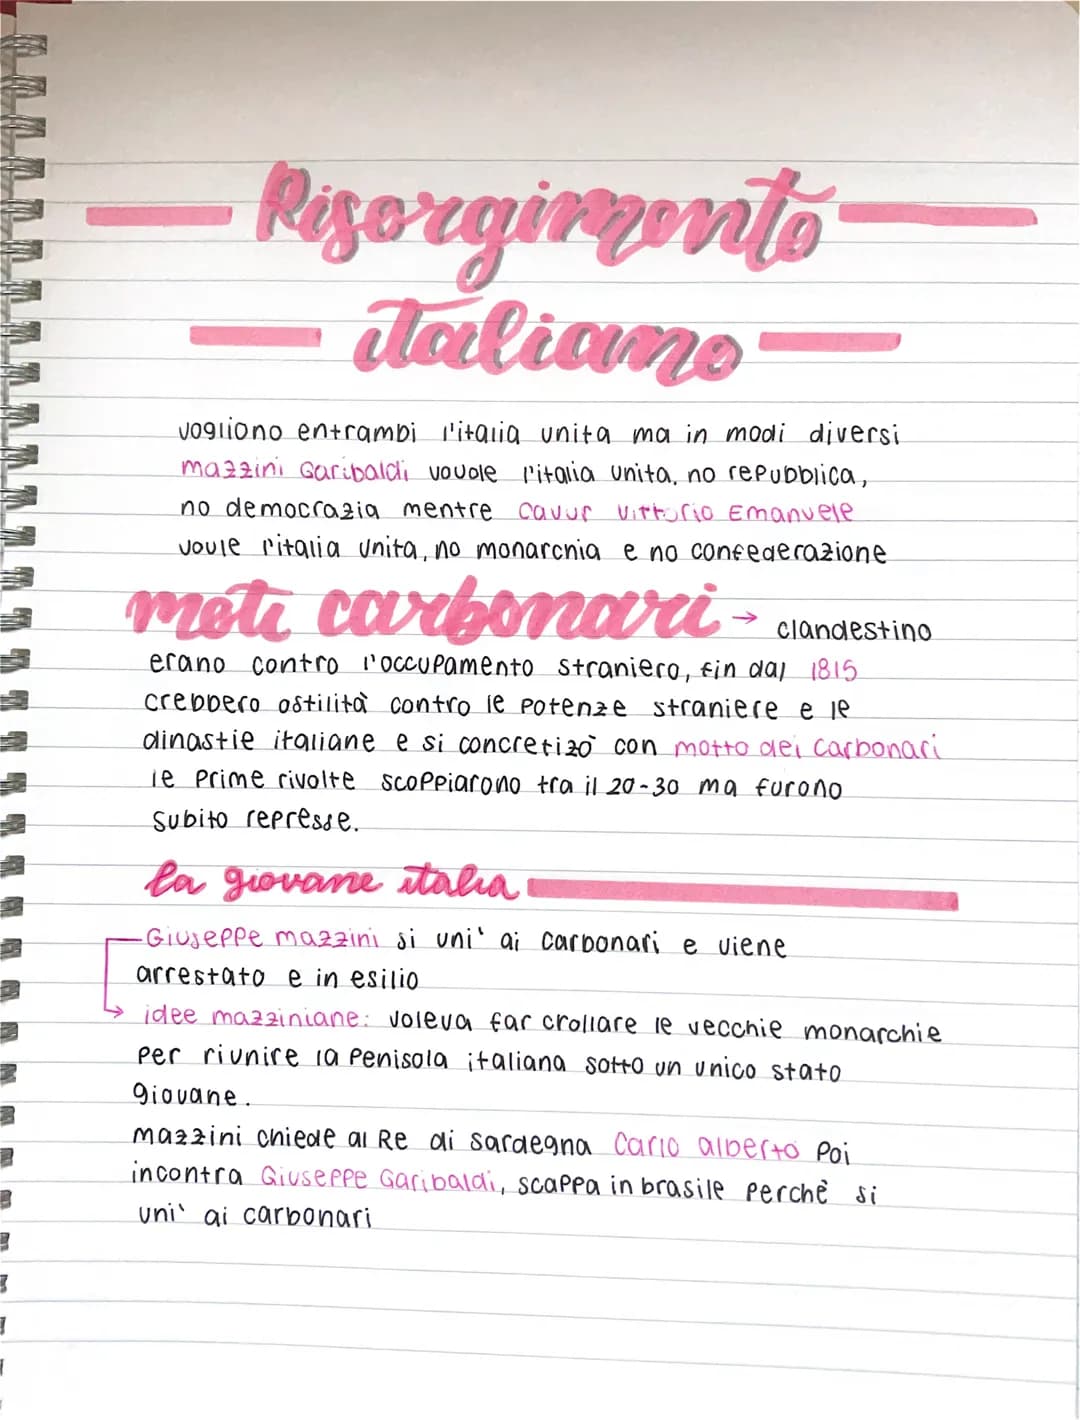 Risorgimento
italiano
vogliono entrambi l'italia unita ma in modi diversi
mazzini Garibaldi vouole l'italia unita, no repubblica,
no democrazia mentre cavur vittorio Emanuele
voule l'italia unita, no monarchia e no confederazione
moti carbonari → clandestino
erano contro l'occupamento straniero, fin dal 1815
crebbero ostilità contro le potenze straniere e le
dinastie italiane e si concretizò con motto dei carbonari
le prime rivolte scoppiarono tra il 20-30 ma furono
subito represse.
la giovane italia
Giuseppe mazzini si uni' ai carbonari e viene
arrestato e in esilio
idee mazziniane: voleva far crollare le vecchie monarchie
per riunire la penisola italiana sotto un unico stato
giovane.
mazzini chiede al Re di sardegna Carlo alberto poi
incontra Giuseppe Garibaldi, scappa in brasile perchè si
uni' ai carbonari